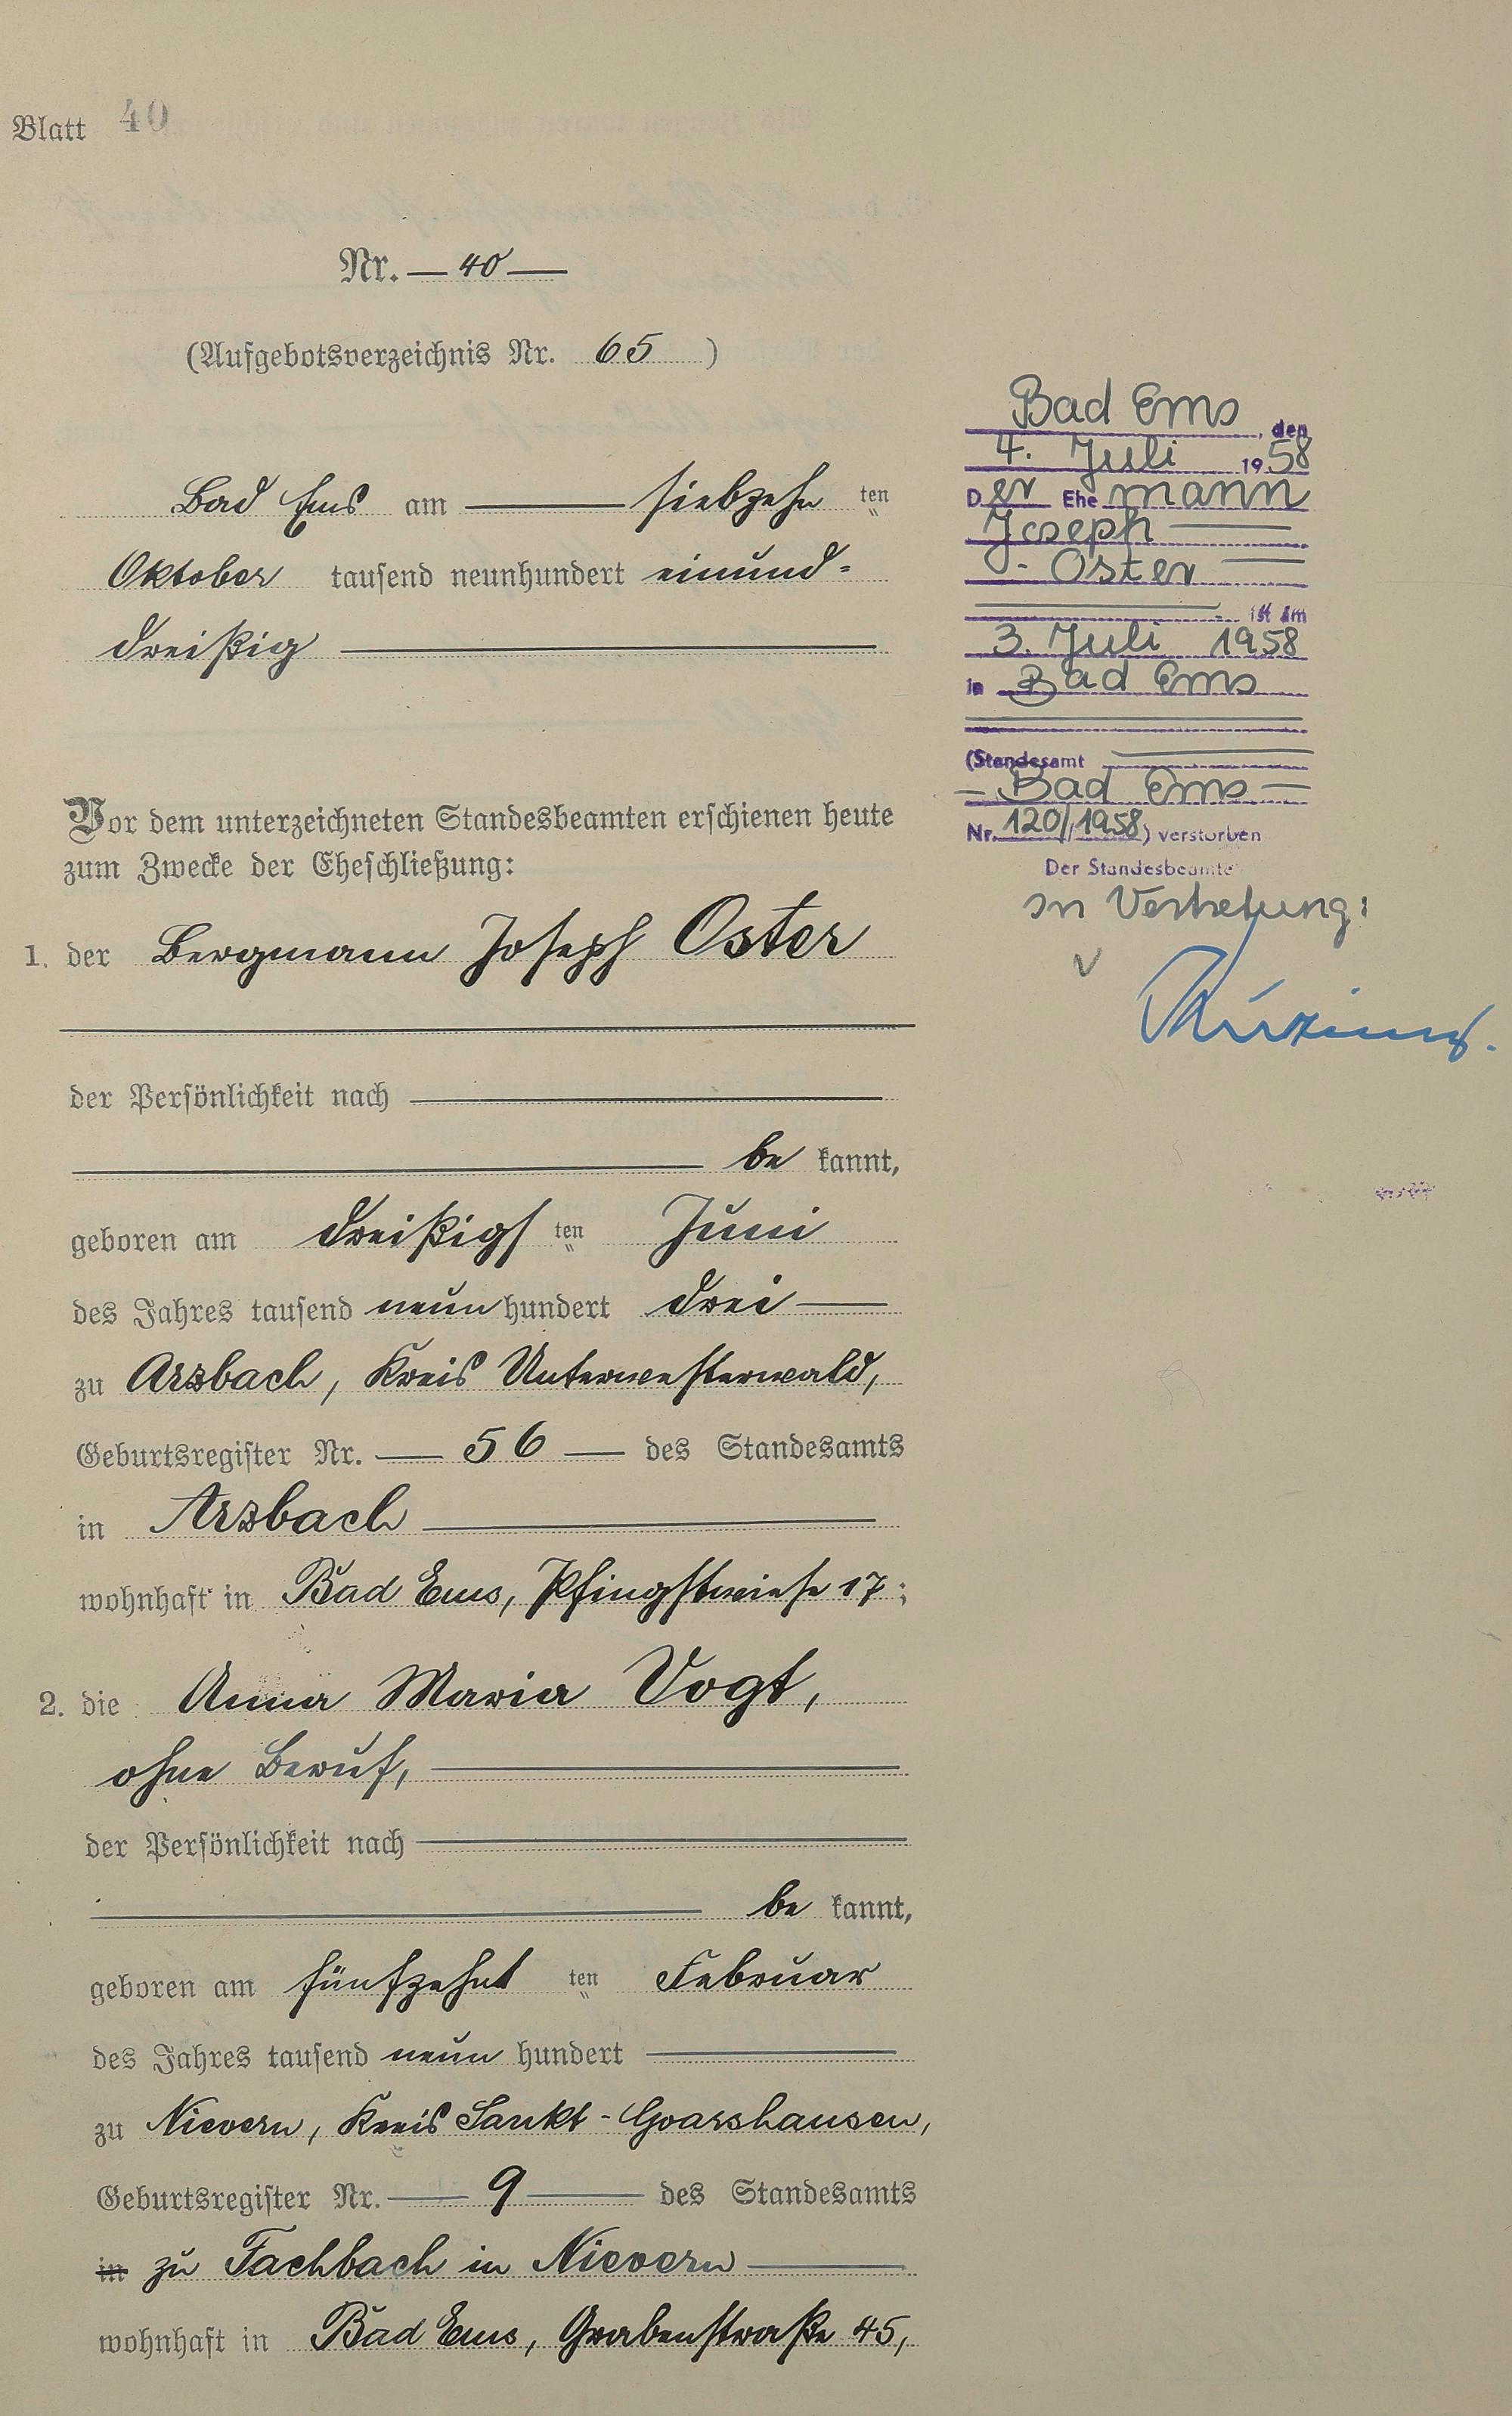 Blatt 40
Nr. 40
(Aufgebotsverzeichnis Nr. 65 )
Bad Ems am siebzehn ten
Oktober tausend neunhundert einund-
dreißig
Vor dem unterzeichneten Standesbeamten erschienen heute
zum Zwecke der Eheschließung:
1. der Bergmann Joseph Oster
der Persönlichkeit nach
be kannt,
geboren am dreißigs ten Juni
des Jahres tausend neun hundert drei
zu Arzbach, Kreis Unterwesterwald,
Geburtsregister Nr. 56 des Standesamts
in Arzbach
wohnhaft in Bad Ems, Pfingstwiese 17;
2. die Anna Maria Vogt,
ohne Beruf,
der Persönlichkeit nach
be kannt,
geboren am fünfzehnt ten Februar
des Jahres tausend neun hundert
zu Nievern, Kreis Sankt-Goarshausen,
Geburtsregister Nr. 9 des Standesamts
in zu Fachbach in Nievern
wohnhaft in Bad Ems, Grabenstraße 45,
Bad Ems, den
4. Juli 1958
Der Ehemann
Joseph
Oster
ist am
3. Juli 1958
in Bad Ems
(Standesamt
Bad Ems
Nr. 120/1958) verstorben
Der Standesbeamte
In Vertretung: